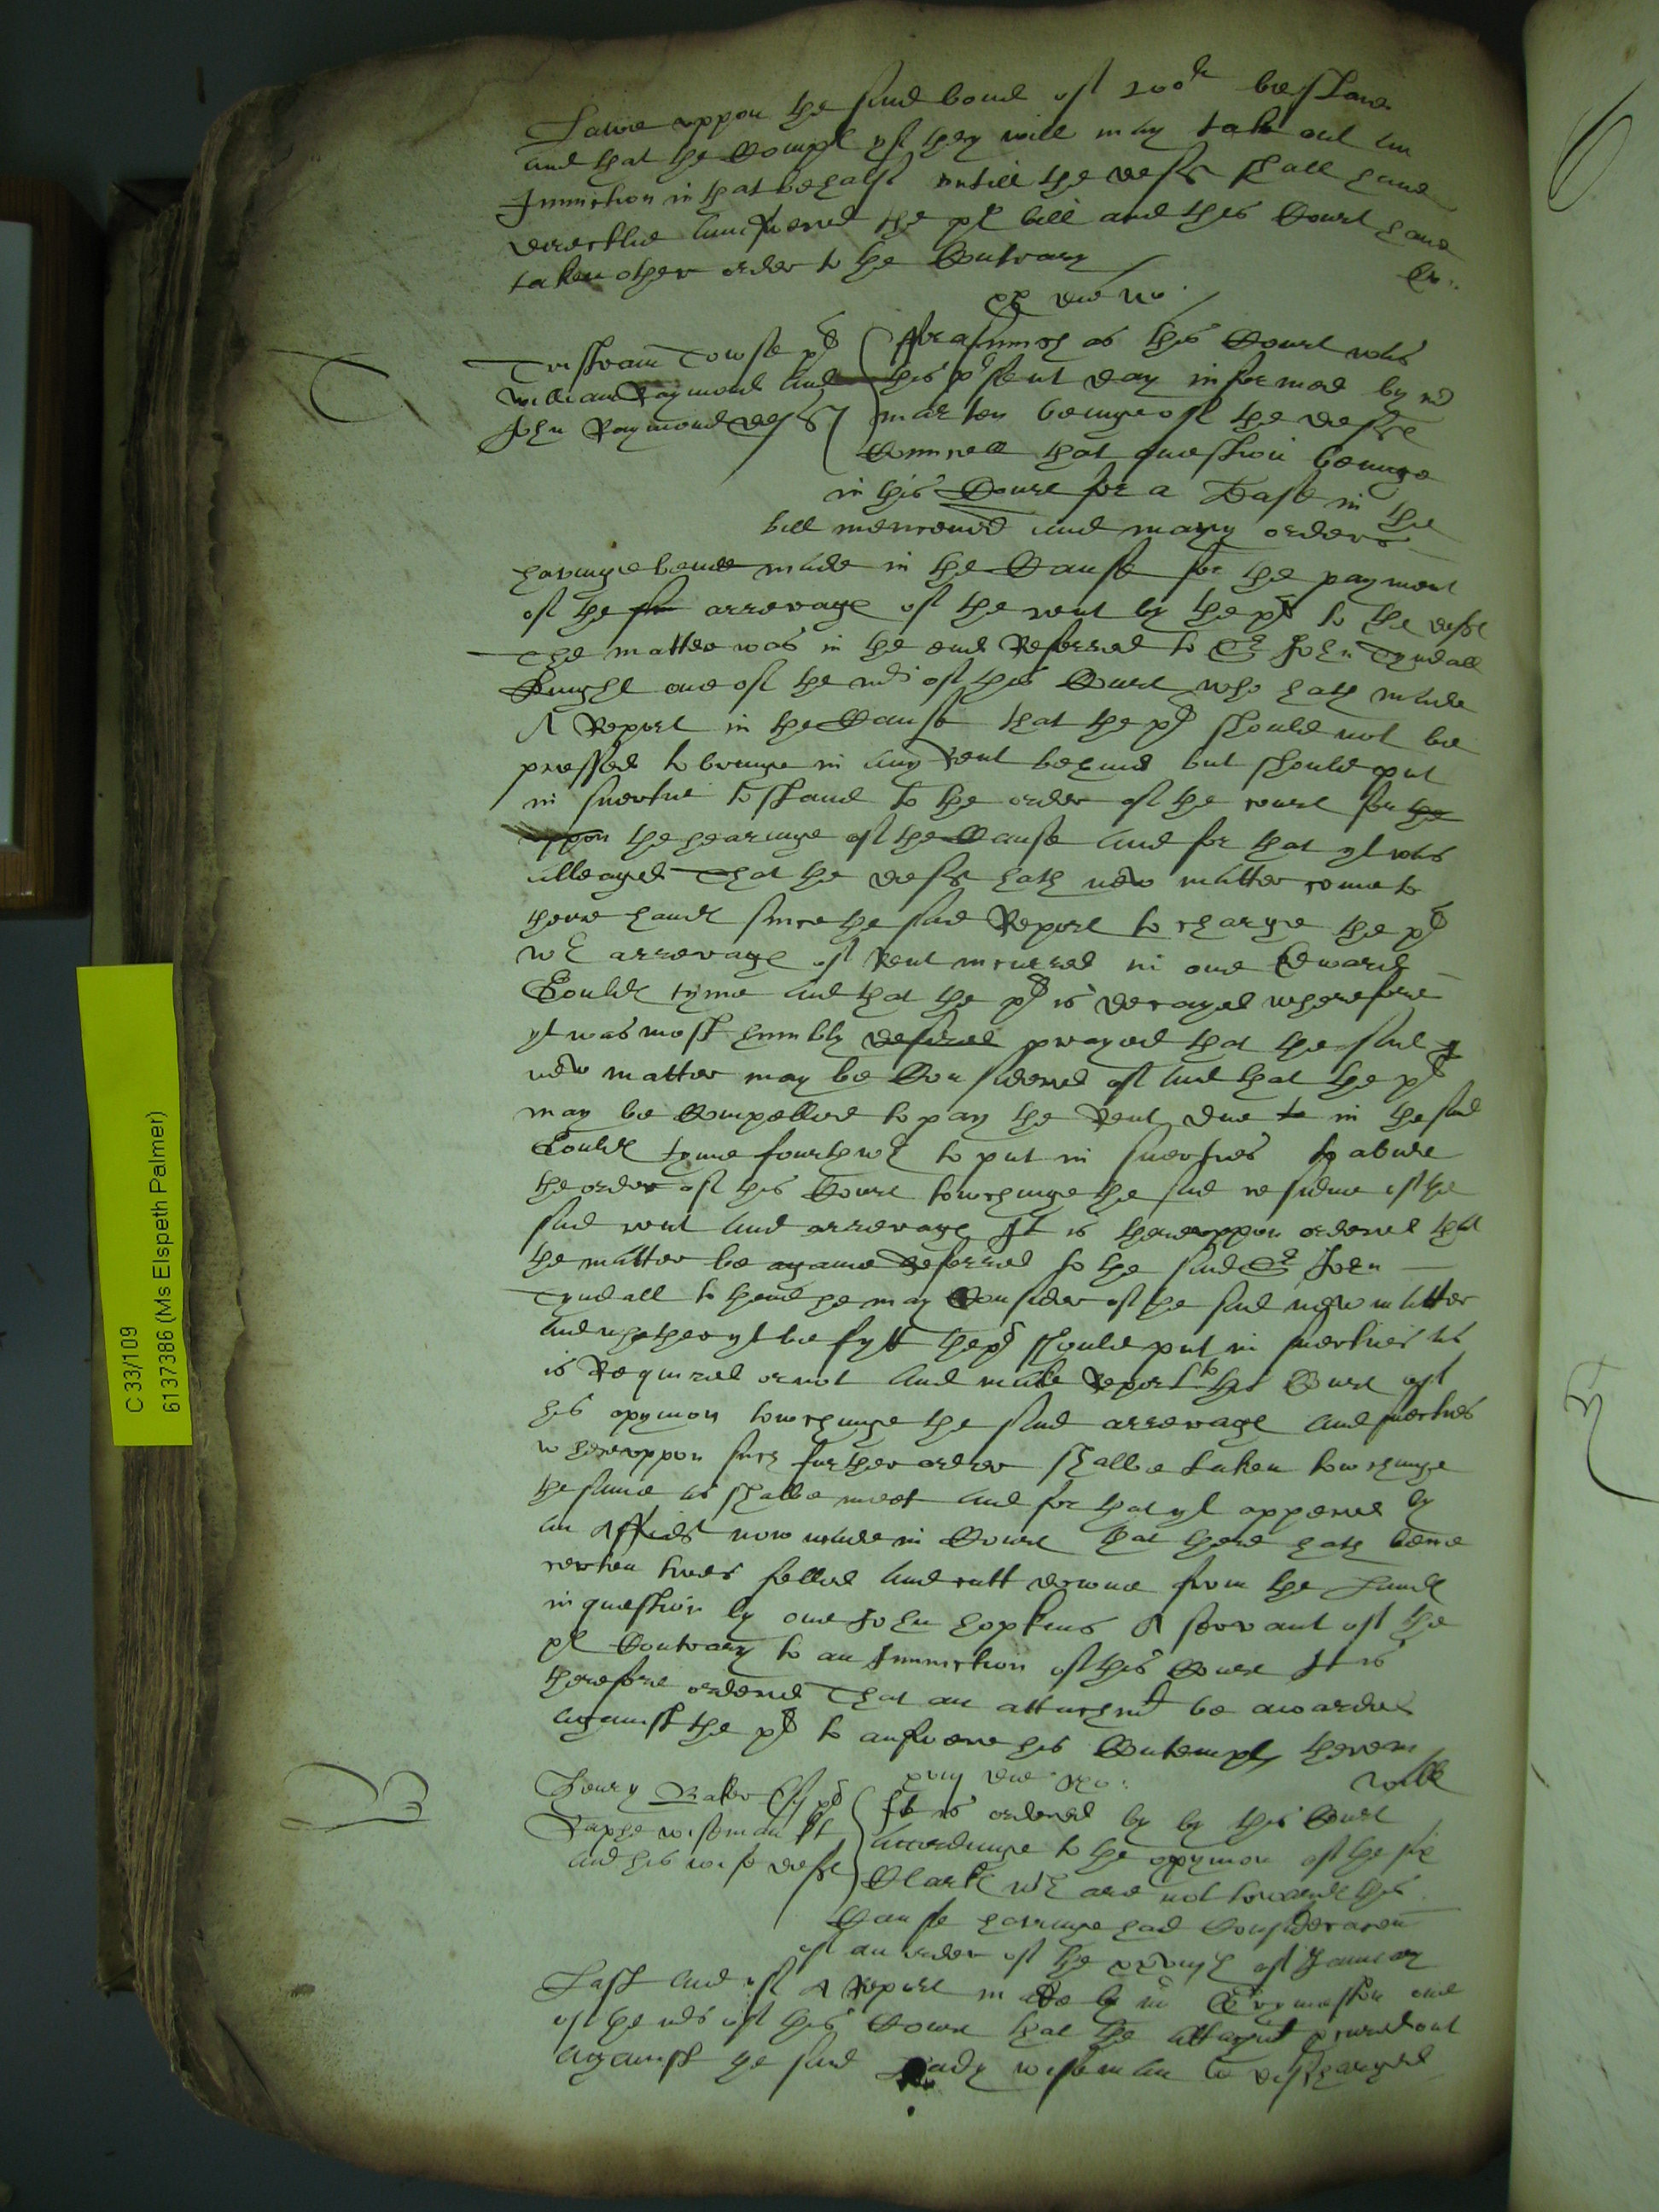 Lawe uppon the said bond of 200li be staied
and that the Compl yf they will may take out an
Iniunction in that behalf untill the defts shall have
directlie aunswered the pl bill and this Court have
taken other order to the Contrary
xx die No
T
Tristram Towse pl
William Raymond and
John Raymond defts
Forasmuch as this Court was
this present day informed by mr
marten beinge of the deftes
Counsell that question beinge
in this Court for a Lease in the
bill mencioned and many orders
havinge bene made in the Cause for the payment
of the arrerages of the rent by the pl to the deftes
The matter was in the end Referred to Sr John Tyndall
knight one of the mrs of this Court who hath made
A Report in the Cause that the pl should not be
pressed to bringe in any Rent behind but should put
in suertie to stand to the order of the court for the
uppon the hearinge of the Cause and for that yt was
alleaged That the defts hath new matter come to
there handes since the said Report to charge the pl
wth arrerages of Rent incurred in one Edward
Goulds tyme and that the pl is decayed wherefore
yt was most humbly desired prayed that the said
new matter may be Considered of and that the pl
may be Compelled to pay the Rent due to in the said
Goulds tyme fourthwth to put in suerties to abide
the order of this Court towchinge the said residue of the
said rent and arrerages It is thereuppon ordered that
the matter be againe Referred to the said Sr John
Tyndall to thend he may Consider of the said new matter
and whether yt be fytt the pl should put in suerties as
is Required or not and make Report to this Court of
his opynion towchinge the said arrerages and suerties
whereuppon such further order shalbe taken towchinge
the same as shalbe meet and for that yt appered by
an Affidt now made in Court that there hath bene
certen trees felled and cutt downe from the Landes
in question by one John hopkins A servant of the
pl Contrary to an Iniunction of this Court It is
therefore ordered That an attachmt be awarded
against the pl to aunswere his Contempt therein
B
xviij die No
Henry Baker Esq pl
Raphe wiseman kt
and his wife deftes
It is ordered by by this Court
accordinge to the opynion of the six
Clarkes wch are not towardes this
Cause havinge had Consideracon
of an order of the xxviijth of January
Last and of A Report made by mr
of the mrs of this Court that the attachmt out
against the said Lady wiseman be discharged
C 33/109
61377386 (Ms Elspeth Palmer)